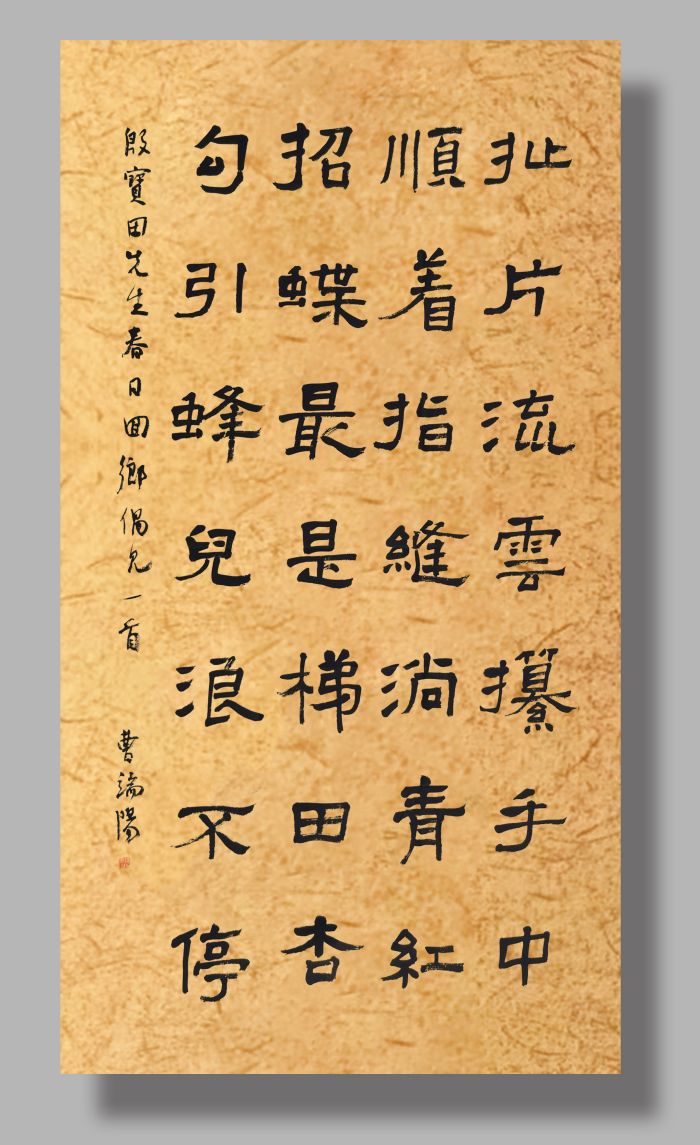 扯片流雲攥手中
順着指縫淌青紅
招蝶最是梯田杏
勾引蜂兒浪不停
殷寶田先生春日回鄉偶見一首
曹端陽